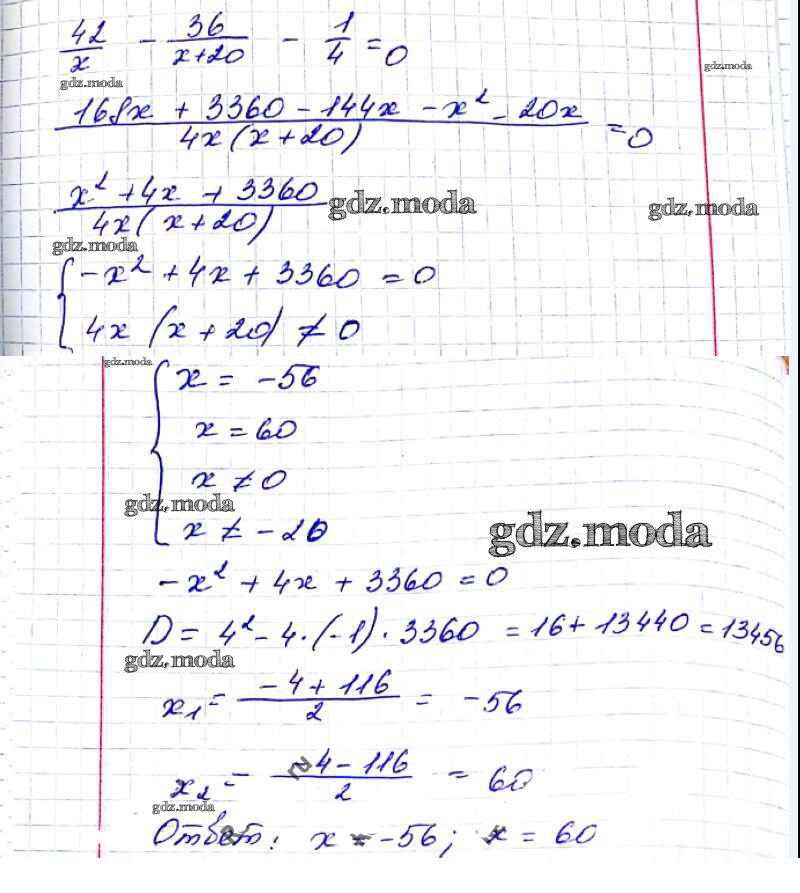 42/x - 36/(x+20) - 1/4 = 0
gdz.moda
gdz.moda
(168x + 3360 - 144x - x² - 20x)/(4x(x+20)) = 0
(x² + 4x + 3360)/(4x(x+20))
gdz.moda
gdz.moda
gdz.moda
{ -x² + 4x + 3360 = 0
4x (x + 20) ≠ 0
gdz.moda
{ x = -56
x = 60
x ≠ 0
gdz.moda
x ≠ -20
gdz.moda
-x² + 4x + 3360 = 0
D = 4² - 4·(-1)·3360 = 16 + 13440 = 13456
gdz.moda
x₁ = (-4 + 116)/2 = -56
x₂ = (-4 - 116)/2 = 60
gdz.moda
Ответ: x = -56; x = 60